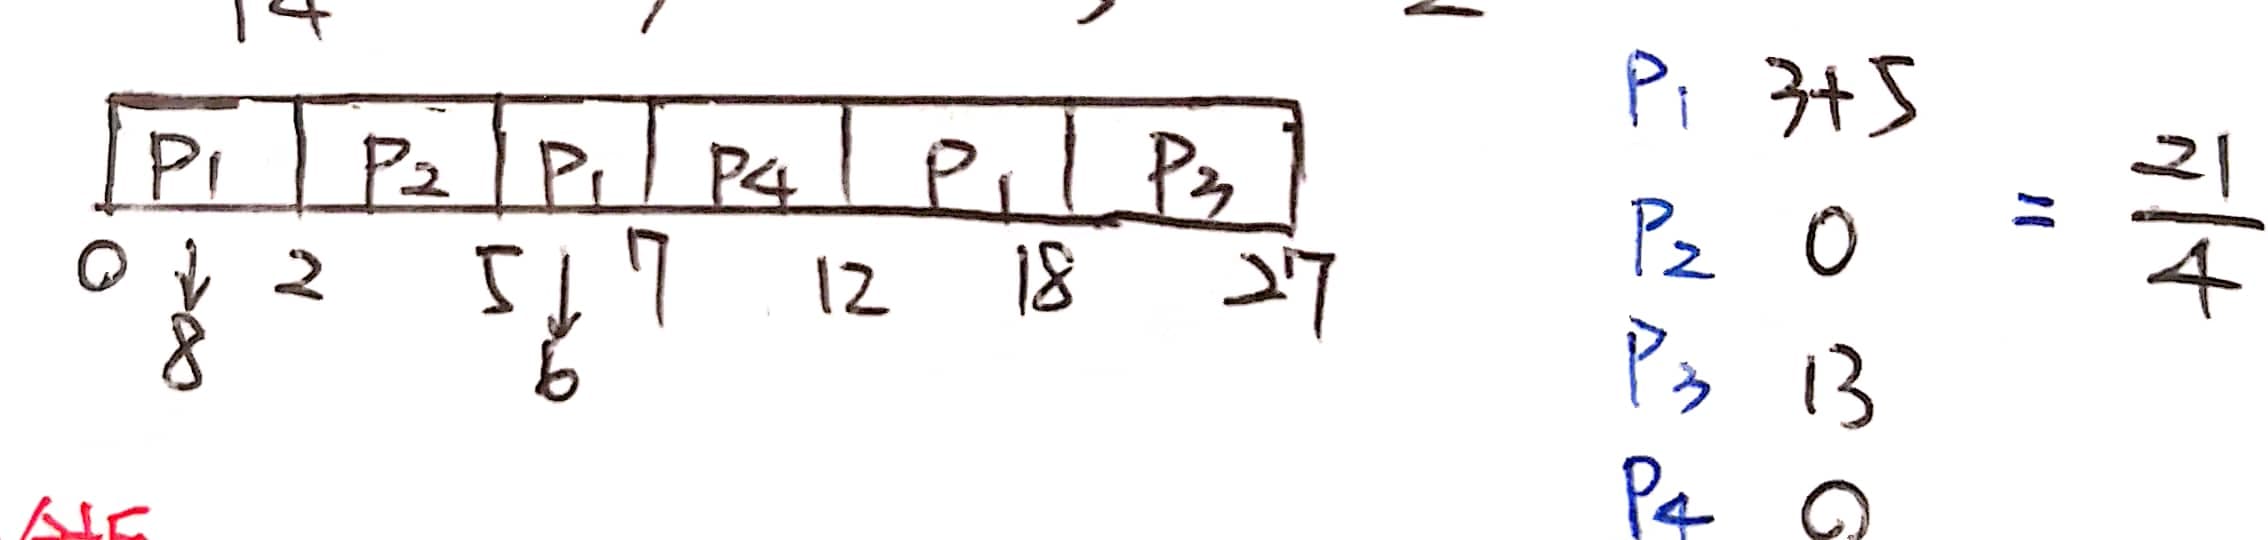 P1 P2 P1 P4 P1 P3
0 2 5 7 12 18 27
↓ ↓
8 6
P1 3+5
P2 0
P3 13
P4 0
= 21
4